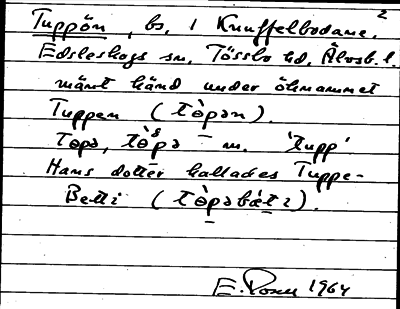 2
Tuppön, bs. i Knuffelbodane,
Edsleskogs sn, Tössbo hd, Älvsb. l.
mänt känd under öknamnet
Tuppen (tòpən).
Topə, tòpə m. 'tupp'
Hans dotter kallades Tuppe-
Betti (tòpəbæ̀ti).
E. Rosen 1964